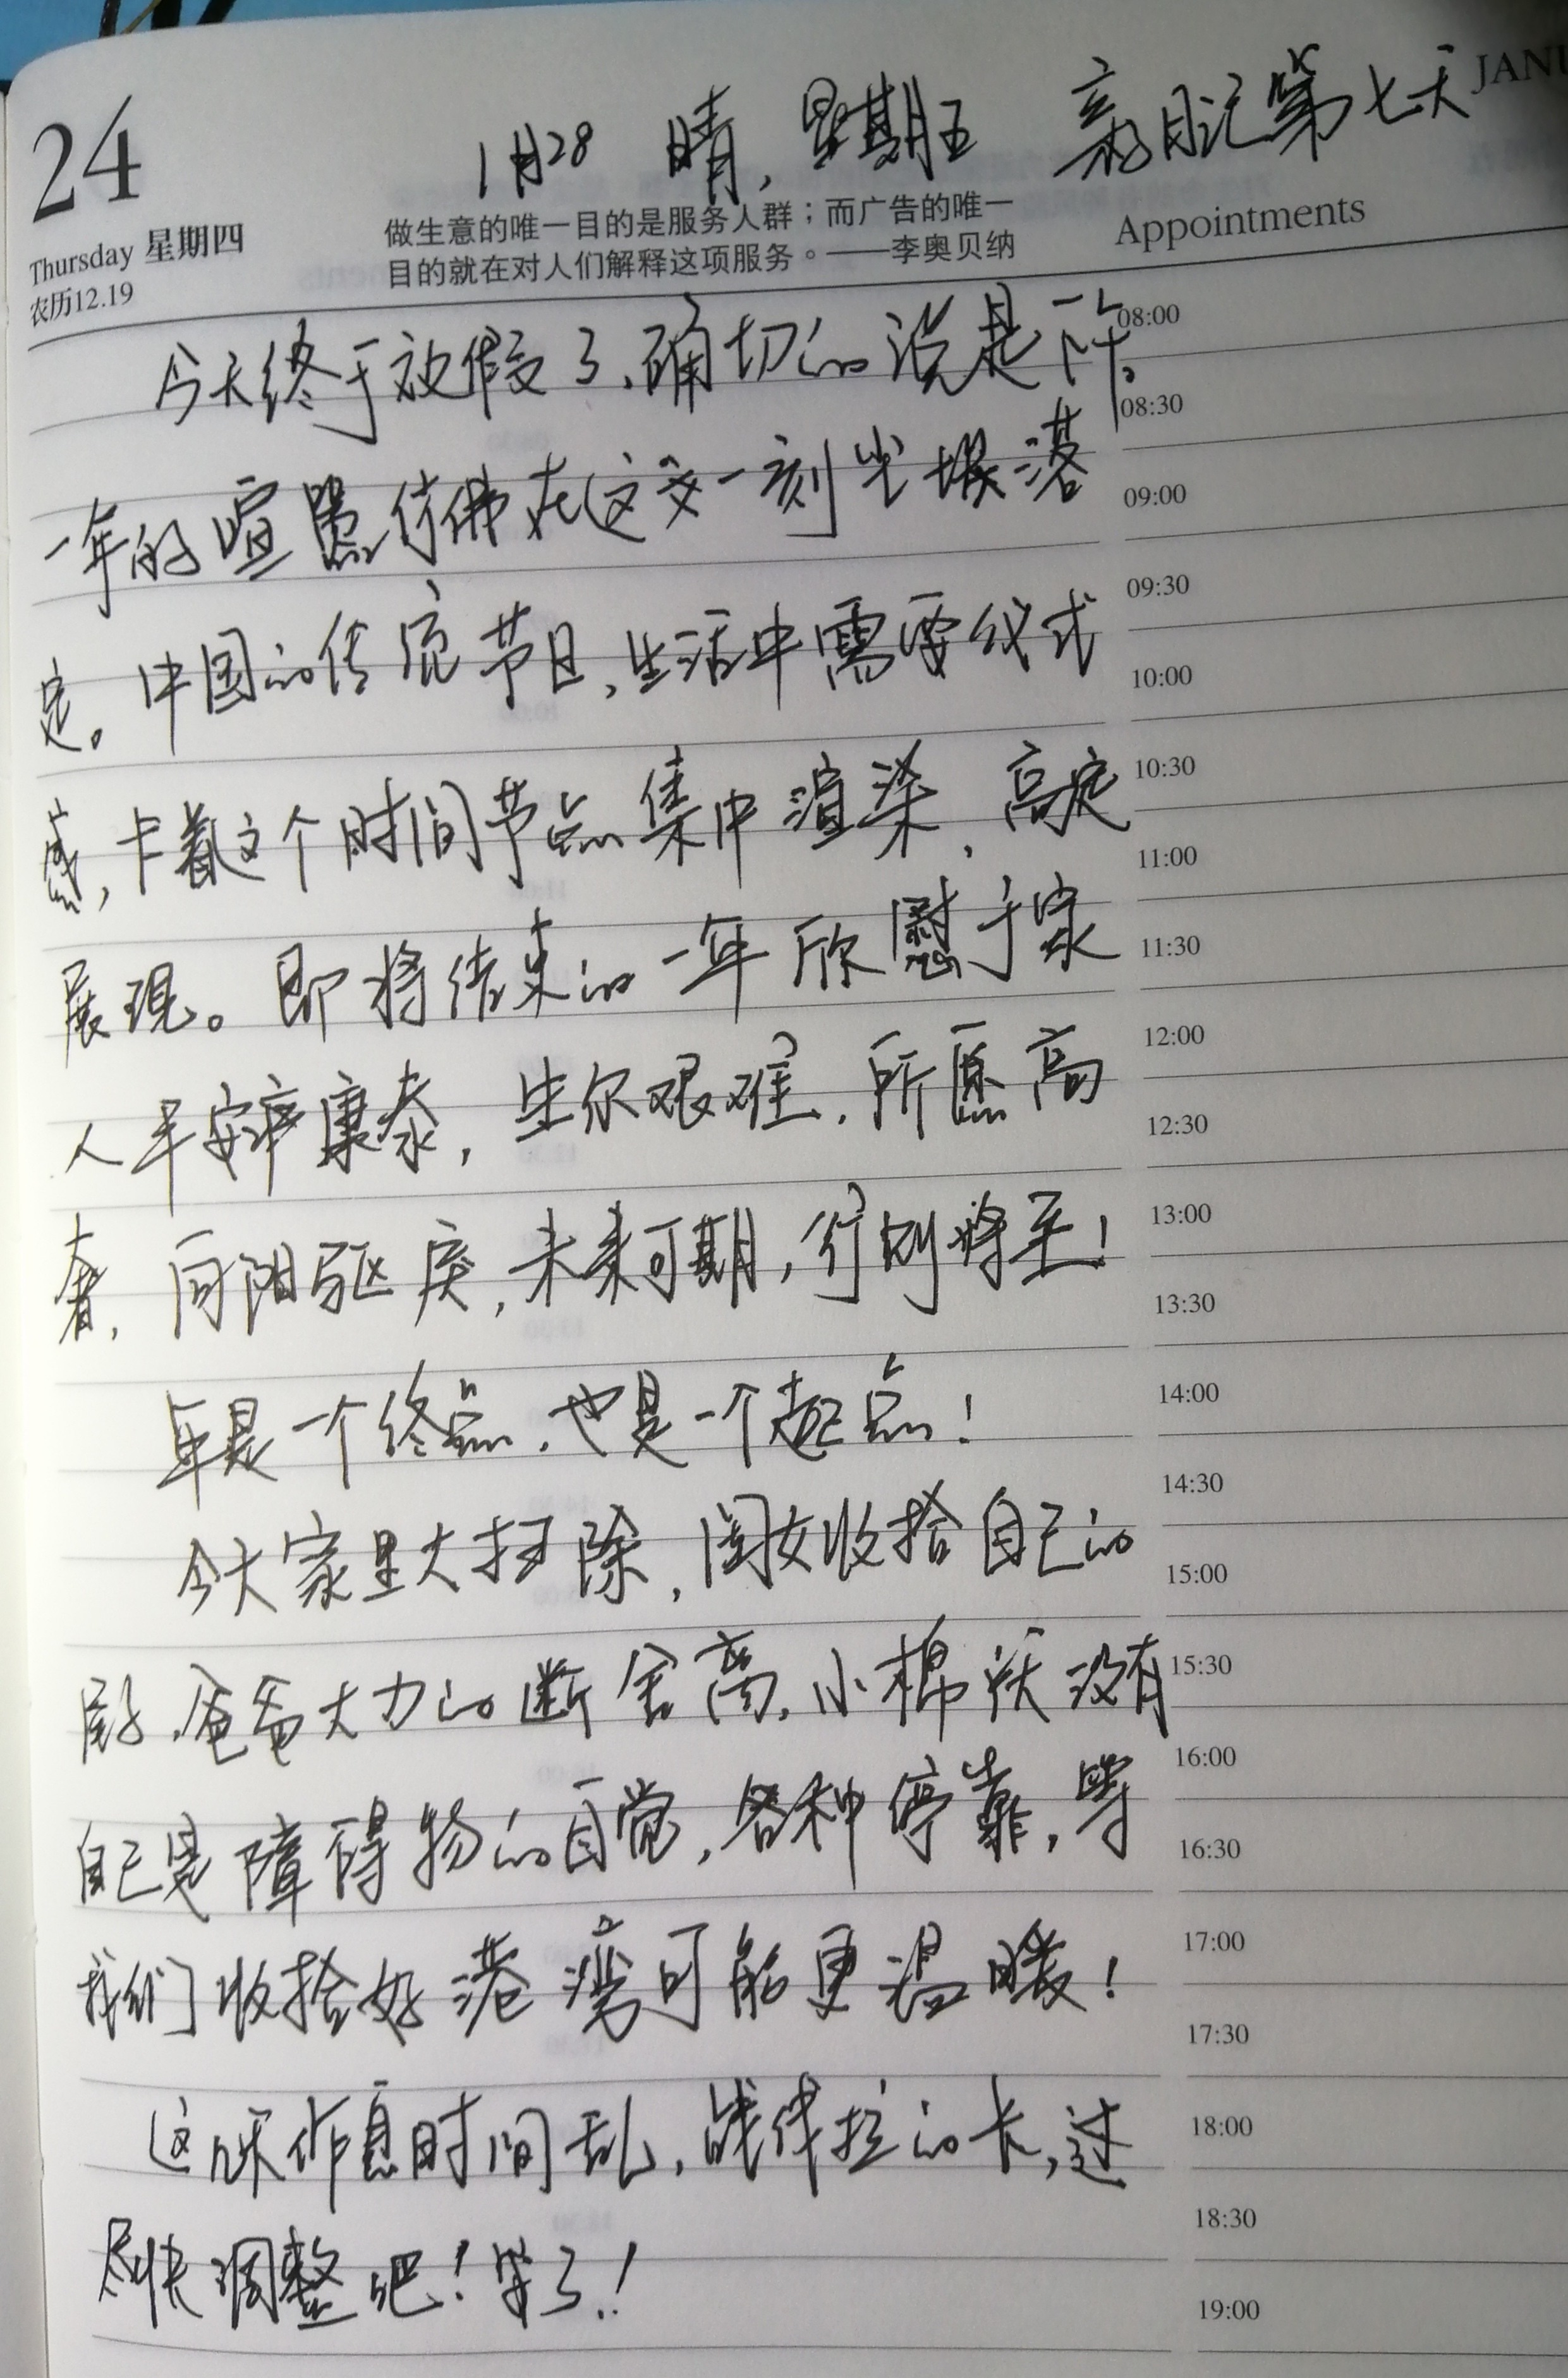 JANU
24
1月28 晴，星期五 日记第七天
Thursday 星期四
农历12.19
做生意的唯一目的是服务人群；而广告的唯一
目的就在对人们解释这项服务。——李奥贝纳
Appointments
今天终于放假了，确切的说是下午。
一年的喧嚣仿佛在这一刻尘埃落
定。中国的传统节日，生活中需要仪式
感，卡着这个时间节点集中渲染，高度
展现。即将结束的一年欣慰于家
人平安康泰，生尔艰难，所愿高
奢，向阳驱戾，未来可期，行则将至！
年是一个终点，也是一个起点！
今天家里大扫除，闺女收拾自己的
屋子，爸爸大力的断舍离，小棉袄没有
自己是障碍物的自觉，各种停靠，等
我们收拾好港湾可能更温暖！
这几天作息时间乱，战线拉的长，过
尽快调整吧！笑了！
08:00
08:30
09:00
09:30
10:00
10:30
11:00
11:30
12:00
12:30
13:00
13:30
14:00
14:30
15:00
15:30
16:00
16:30
17:00
17:30
18:00
18:30
19:00